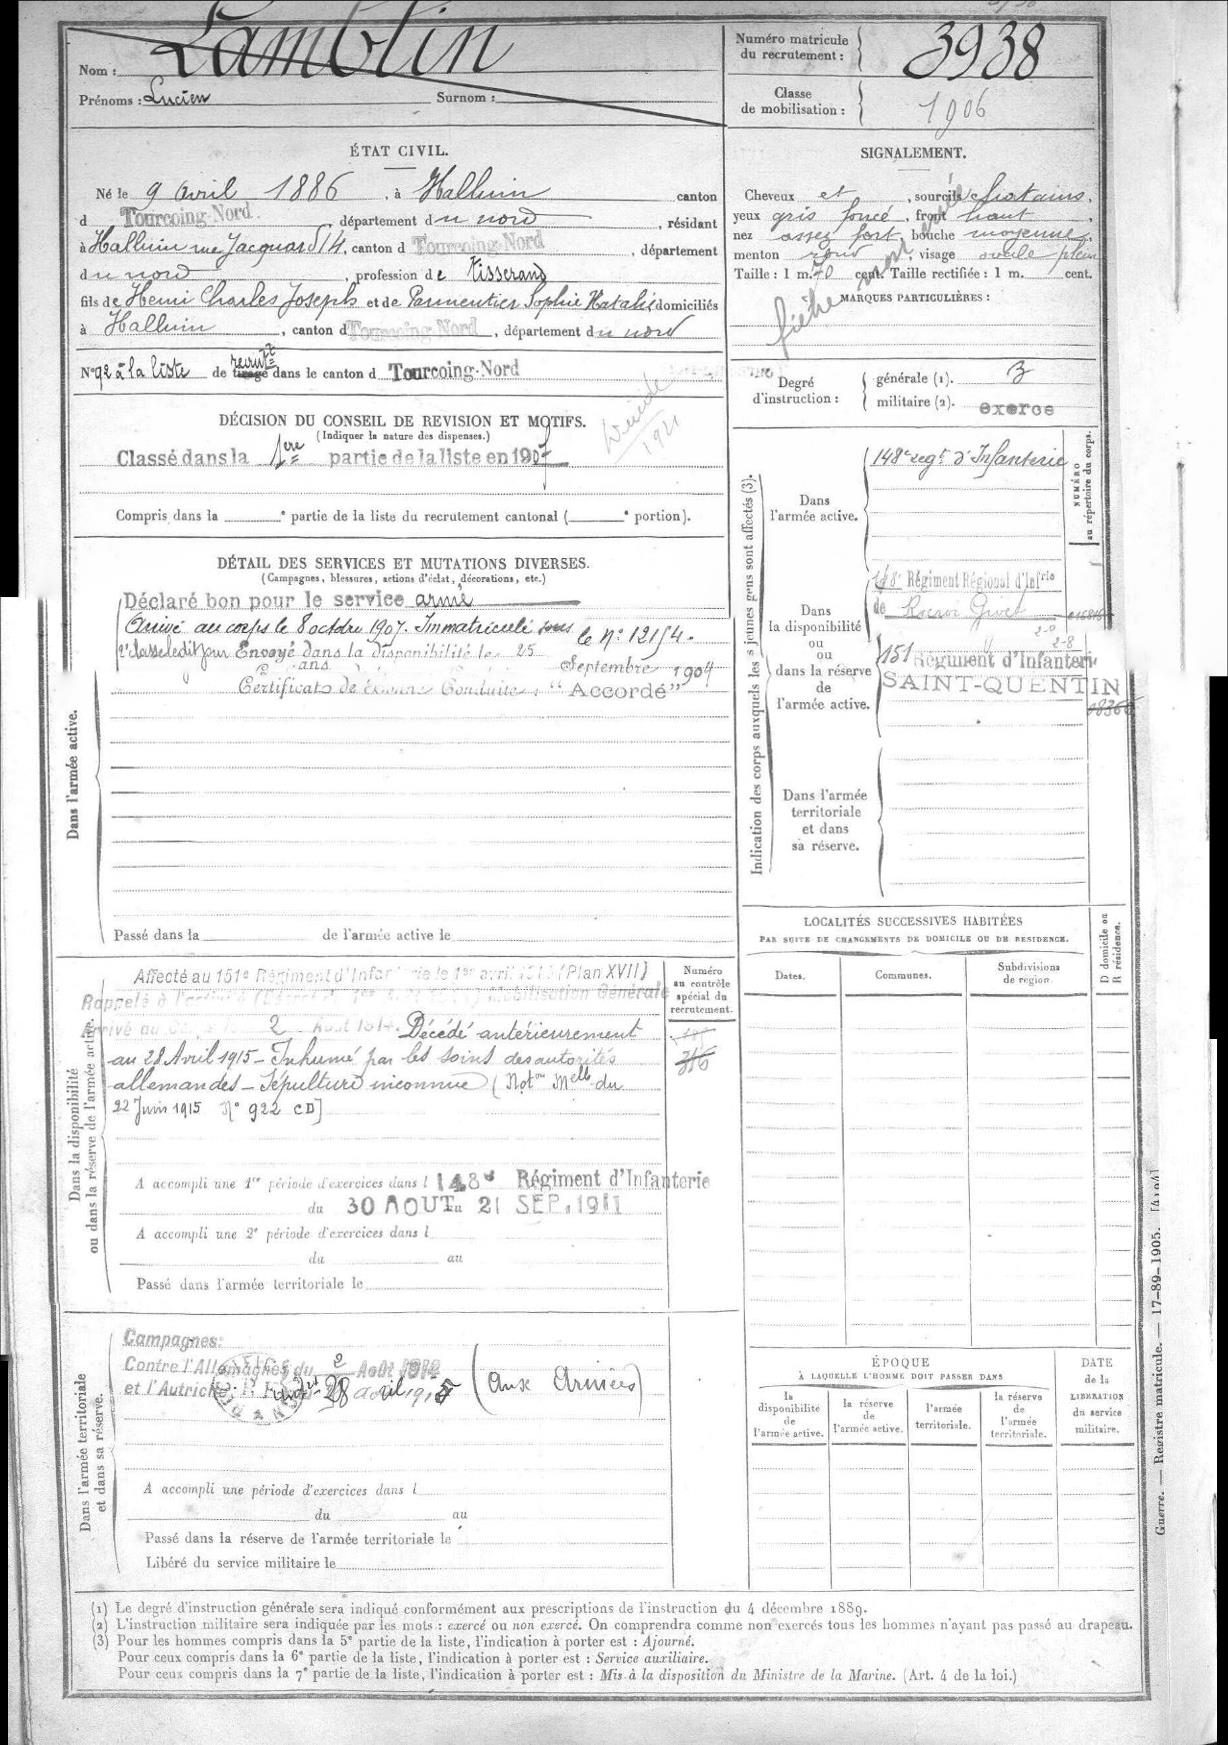 Nom : Lamblin
Prénoms : Lucien Surnom :
Numéro matricule du recrutement : 3938
Classe de mobilisation : 1906
ÉTAT CIVIL.
Né le 9 avril 1886, à Halluin canton
d Tourcoing-Nord, département du nord, résidant
à Halluin rue Jacquard 14, canton d Tourcoing-Nord, département
du nord, profession de tisserand
fils de Henri Charles Joseph et de Parmentier Sophie Natalie domiciliés
à Halluin, canton d Tourcoing-Nord, département du nord
N° 92 à la liste de recrutt dans le canton d Tourcoing-Nord
SIGNALEMENT.
Cheveux et, sourcils chatains,
yeux gris foncé, front haut,
nez assez fort, bouche moyenne,
menton rond, visage ovale plein
Taille : 1 m. 70 cent. Taille rectifiée : 1 m. cent.
MARQUES PARTICULIÈRES :
Degré d'instruction : générale (1). 3
militaire (2). exercé
DÉCISION DU CONSEIL DE REVISION ET MOTIFS.
(Indiquer la nature des dispenses.)
Classé dans la 1ère partie de la liste en 1907
1921
Compris dans la e partie de la liste du recrutement cantonal ( e portion).
DÉTAIL DES SERVICES ET MUTATIONS DIVERSES.
(Campagnes, blessures, actions d'éclat, décorations, etc.)
Dans l'armée active.
Déclaré bon pour le service armé
Arrivé au corps le 8 octobre 1907. Immatriculé sous le N° 12154.
Envoyé dans la disponibilité le 25
Septembre 1909
Certificat de Bonne Conduite : "Accordé"
Passé dans la de l'armée active le
Indication des corps auxquels les jeunes gens sont affectés (3).
NUMÉRO au répertoire du corps.
Dans l'armée active.
148e regt d'Infanterie
Dans la disponibilité ou dans la réserve de l'armée active.
148e Régiment Régional d'Infrie
de Rocroi Givet
151 Régiment d'Infanterie
SAINT-QUENTIN
Dans l'armée territoriale et dans sa réserve.
Dans la disponibilité ou dans la réserve de l'armée active.
Affecté au 151e Régiment d'Infanterie le 1er avril (Plan XVII)
Rappelé à l'activité Mobilisation Générale
Arrivé au Corps le 2 Août 1914. Décédé antérieurement
au 28 Avril 1915 - Inhumé par les soins des autorités
allemandes - Sépulture inconnue (Noton Melle du
22 Juin 1915 N° 922 CD]
Numéro au contrôle spécial du recrutement.
A accompli une 1re période d'exercices dans l 148e Régiment d'Infanterie
du 30 AOUT au 21 SEP. 1911
A accompli une 2e période d'exercices dans l
du au
Passé dans l'armée territoriale le
LOCALITÉS SUCCESSIVES HABITÉES
PAR SUITE DE CHANGEMENTS DE DOMICILE OU DE RESIDENCE.
Dates. Communes. Subdivisions de région. D domicile ou R résidence.
Dans l'armée territoriale et dans sa réserve.
Campagnes:
Contre l'Allemagne du 2 Août 1914
et l'Autriche 28 avril 1915 (aux Armées)
A accompli une période d'exercices dans l
du au
Passé dans la réserve de l'armée territoriale le
Libéré du service militaire le
ÉPOQUE
À LAQUELLE L'HOMME DOIT PASSER DANS
la disponibilité de l'armée active. la réserve de l'armée active. l'armée territoriale. la réserve de l'armée territoriale.
DATE de la LIBÉRATION du service militaire.
Guerre. — Registre matricule. — 17-89-1905.
(1) Le degré d'instruction générale sera indiqué conformément aux prescriptions de l'instruction du 4 décembre 1889.
(2) L'instruction militaire sera indiquée par les mots : exercé ou non exercé. On comprendra comme non exercés tous les hommes n'ayant pas passé au drapeau.
(3) Pour les hommes compris dans la 5e partie de la liste, l'indication à porter est : Ajourné.
Pour ceux compris dans la 6e partie de la liste, l'indication à porter est : Service auxiliaire.
Pour ceux compris dans la 7e partie de la liste, l'indication à porter est : Mis à la disposition du Ministre de la Marine. (Art. 4 de la loi.)